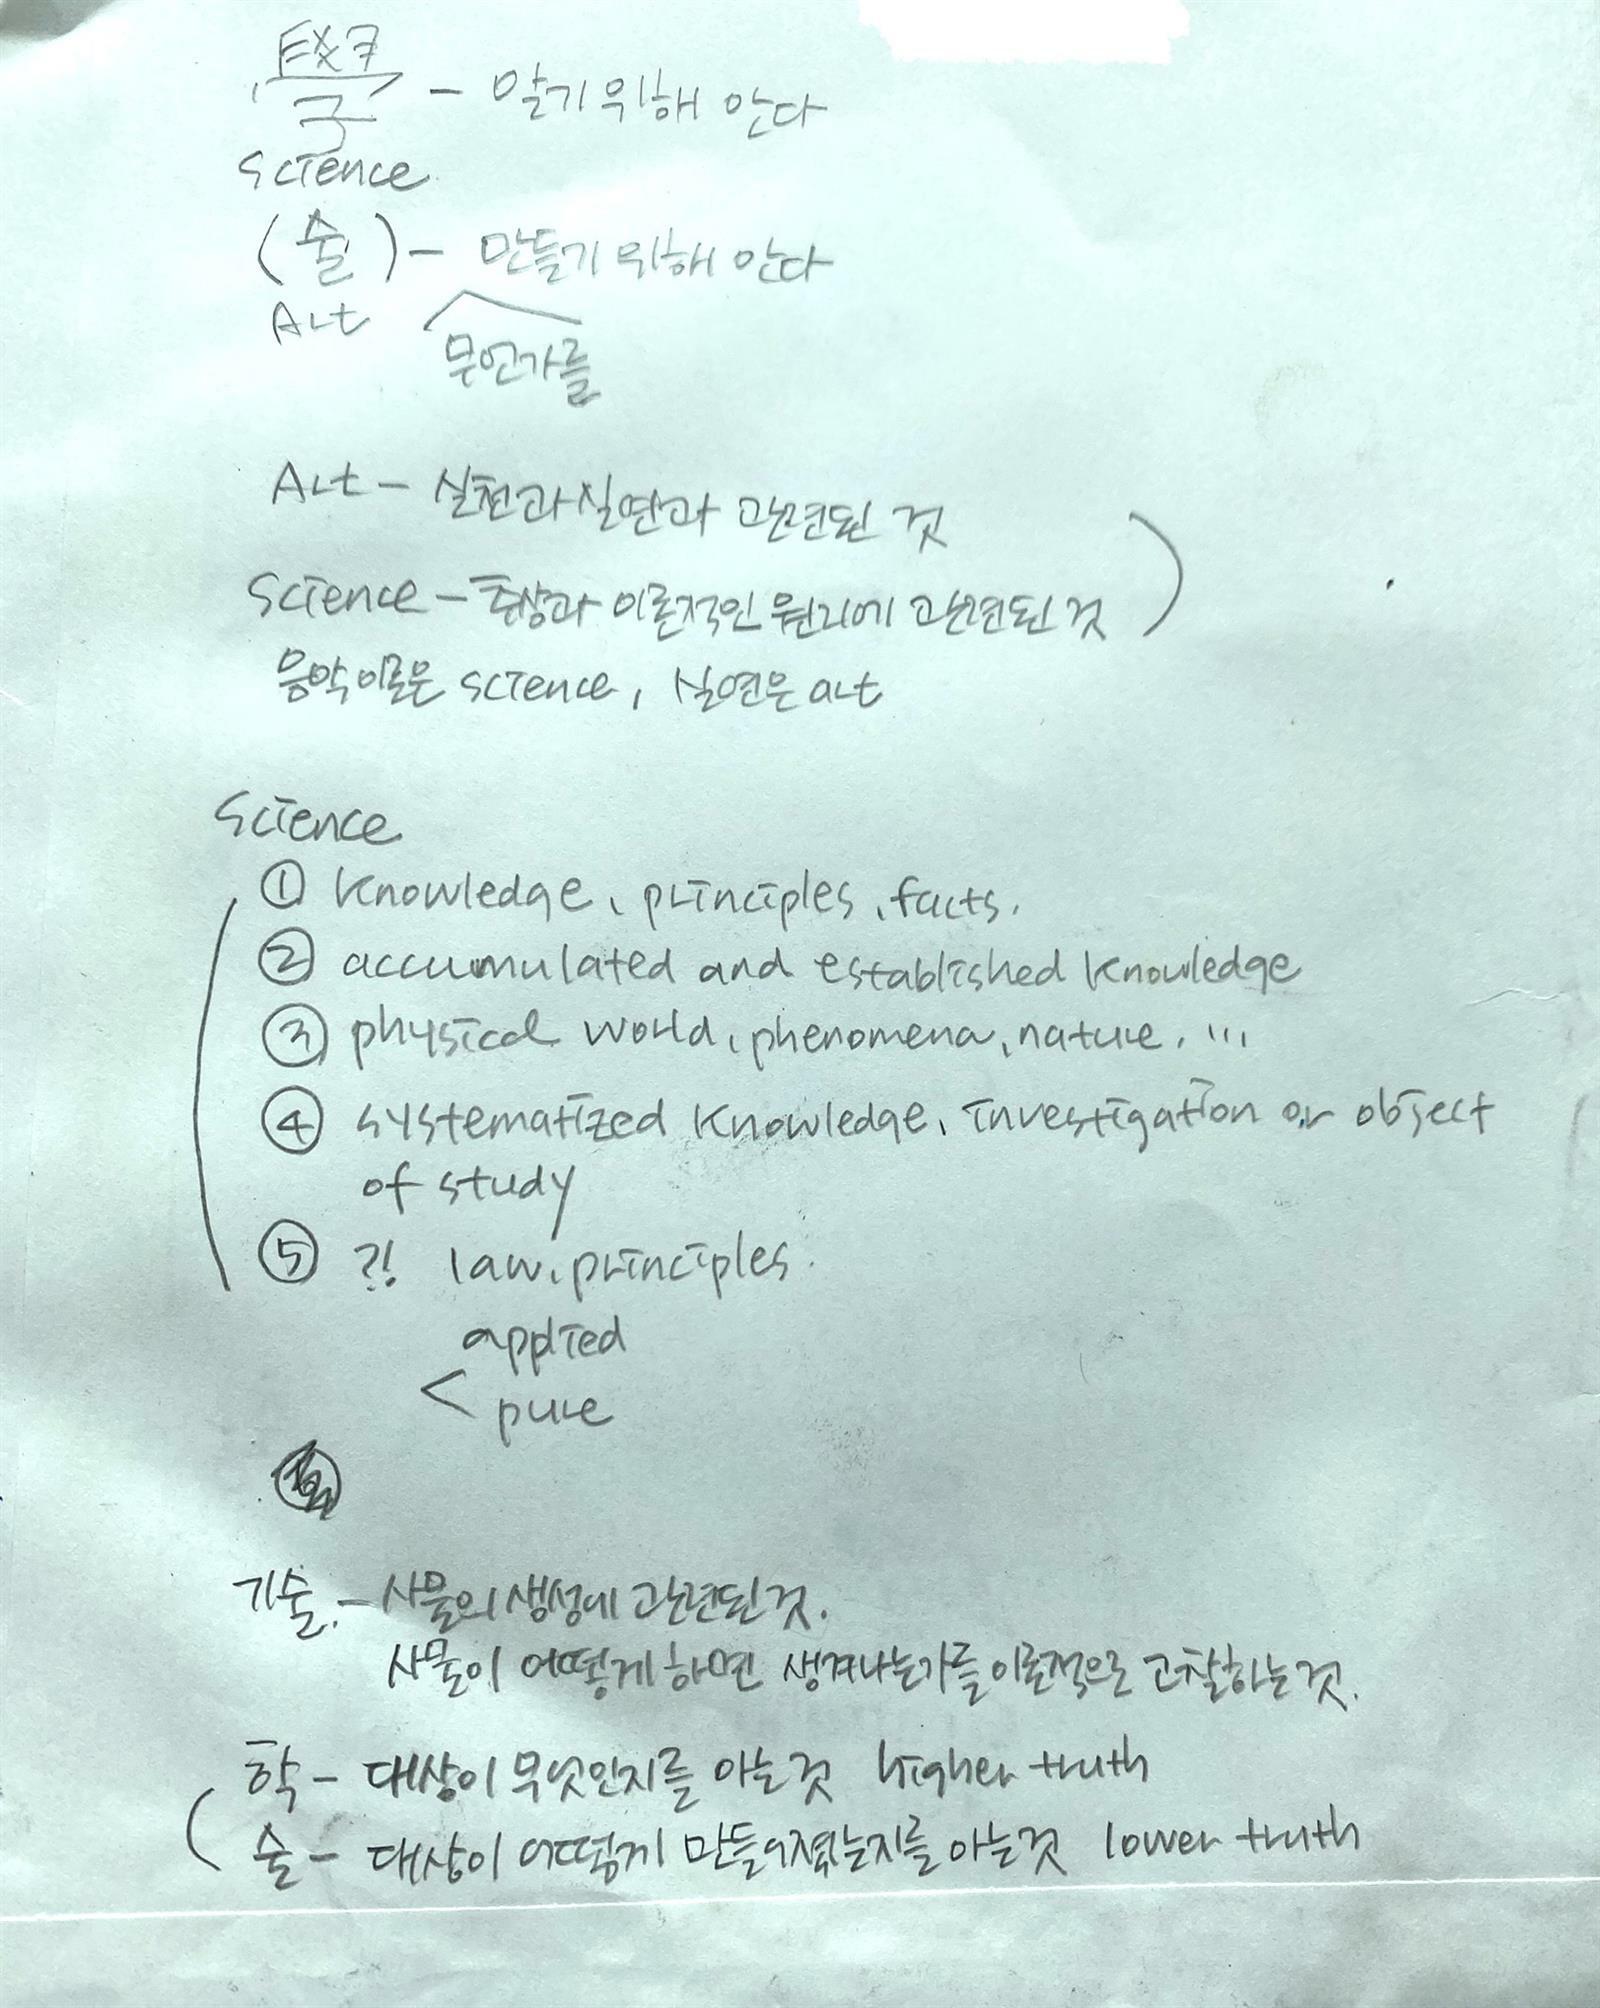 學 - 알기 위해 안다
science
(술) - 만들기 위해 안다
Art
무언가를
Art - 실천과 실연과 관련된 것
Science - 추상과 이론적인 원리에 관련된 것
음악이론은 science, 실연은 art
Science
① knowledge, principles, facts.
② accumulated and established knowledge
③ physical world, phenomena, nature. ...
④ systematized knowledge, investigation or object
of study
⑤ ?! law, principles.
applied
< pure
기술. - 사물의 생성에 관련된 것.
사물이 어떻게 하면 생겨나는가를 이론적으로 고찰하는 것.
학 - 대상이 무엇인지를 아는 것 higher truth
술 - 대상이 어떻게 만들어졌는지를 아는것 lower truth